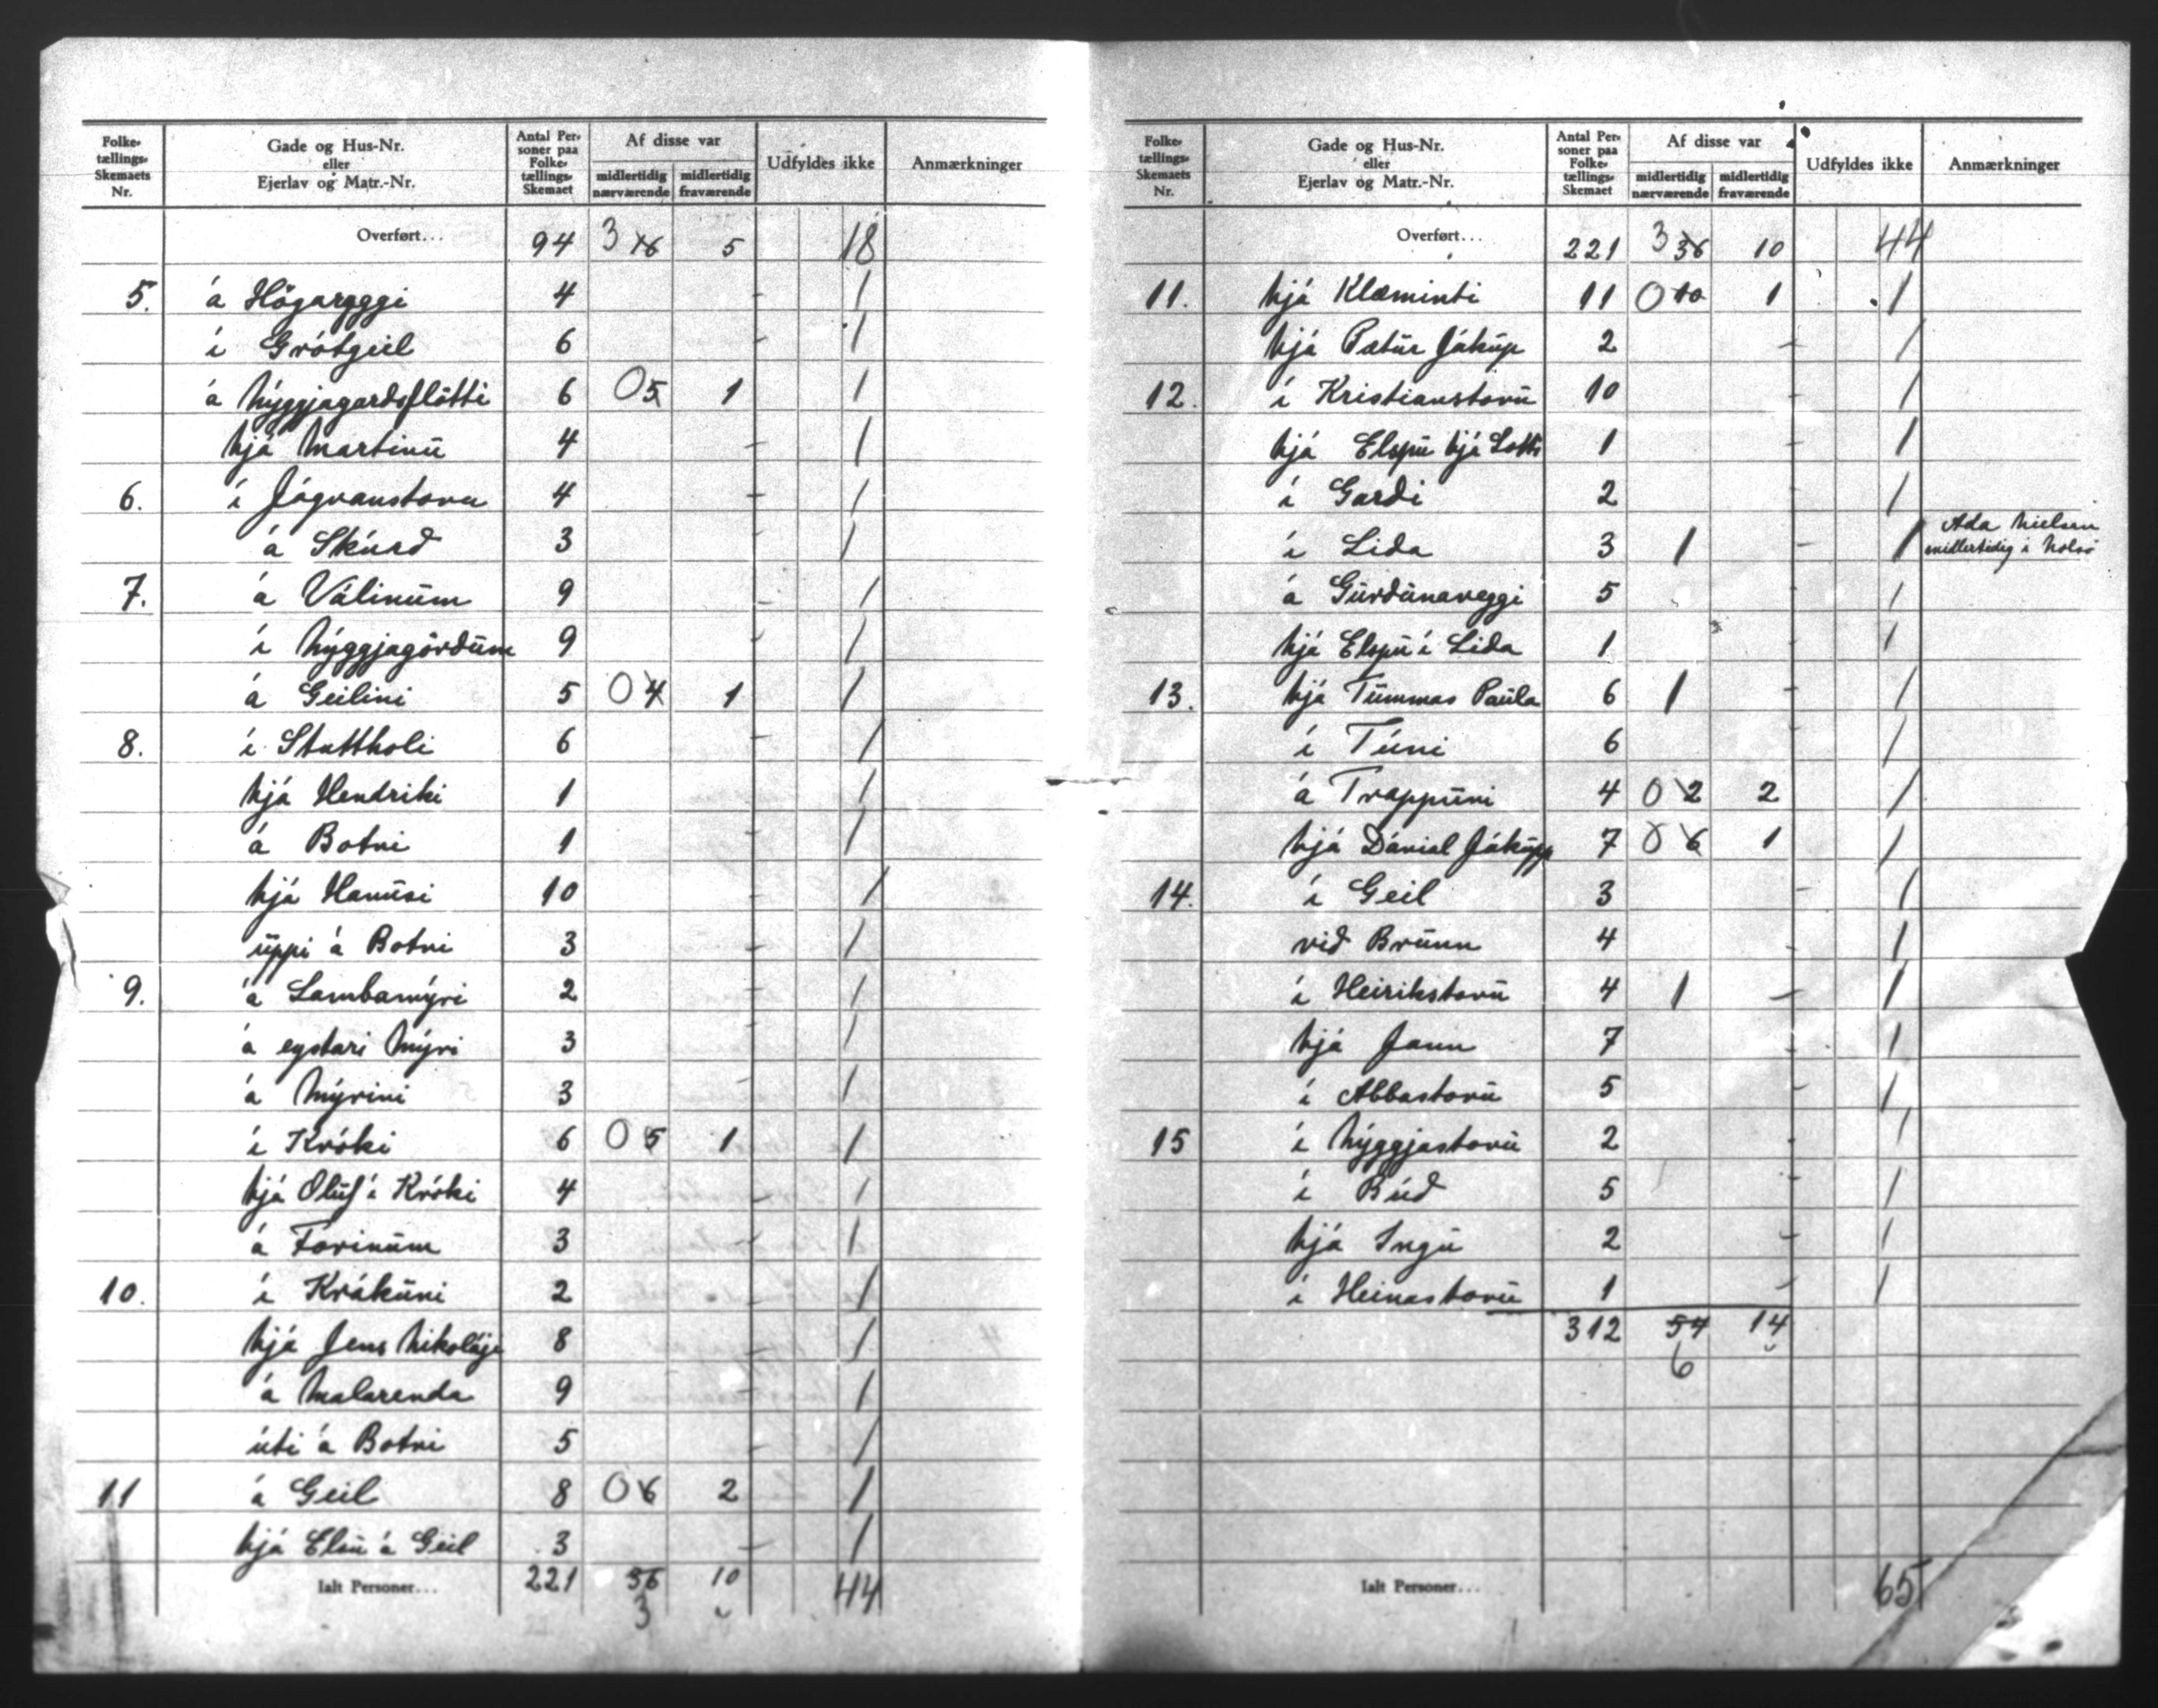 Folke-
tællings-
Skemaets
Nr.
Gade og Hus-Nr.
eller
Ejerlav og Matr.-Nr.
Antal Per-
soner paa
Folke-
tællings-
Skemaet
Af disse var
midlertidig
nærværende
midlertidig
fraværende
Udfyldes ikke
Anmærkninger
Overført... 94 3 16 5 18
5. á Högaryggi 4 - 1
í Grótgeil 6 - 1
á Nýggjagardsfløtti 6 0 5 1 1
hjá Martinū 4 - 1
6. í Jógvanstovu 4 - 1
á Skúrð 3 - 1
7. á Válinūm 9 - 1
í Nýggjagörðūm 9 - 1
á Geilini 5 0 4 1 1
8. í Stuttholi 6 - 1
hjá Hendriki 1 1
á Botni 1 - 1
hjá Hanūsi 10 - 1
ūppi á Botni 3 - 1
9. á Lambamýri 2 - 1
á eystari Mýri 3 1
á Mýrini 3 - 1
í Króki 6 0 5 1 1
hjá Olūf í Króki 4 - 1
á Forinūm 3 - 1
10. í Krákūni 2 - 1
hjá Jens Nikoláji 8 - 1
á Malarenda 9 1
úti á Botni 5 - 1
11 á Geil 8 0 6 2 1
hjá Elsū á Geil 3 - 1
Ialt Personer... 221 36 10 44
3
Folke-
tællings-
Skemaets
Nr.
Gade og Hus-Nr.
eller
Ejerlav og Matr.-Nr.
Antal Per-
soner paa
Folke-
tællings-
Skemaet
Af disse var
midlertidig
nærværende
midlertidig
fraværende
Udfyldes ikke
Anmærkninger
Overført... 221 3 36 10 44
11. hjá Klæminti 11 0 10 1 1
hjá Pætūr Jákūp 2 - 1
12. í Kristianstovū 10 - 1
hjá Elspū hjá Lotti 1 - 1
í Garði 2 1
í Liða 3 1 - 1 Ada Nielsen
midlertidig i Nolsö
á Gūrðūnareggi 5 1
hjá Elspū í Liða 1 - 1
13. hjá Tūmmas Paūla 6 1 - 1
í Túni 6 1
á Trappūni 4 0 2 2 1
hjá Dánial Jákūpp 7 0 6 1 1
14. í Geil 3 - 1
við Brūnn 4 - 1
í Heirikstovū 4 1 - 1
hjá Jann 7 - 1
í Abbastovū 5 - 1
15 í Nýggjastovū 2 - 1
í Búð 5 - 1
hjá Ingū 2 - 1
í Heinastovū 1 - 1
312 54 14
6
Ialt Personer... 65